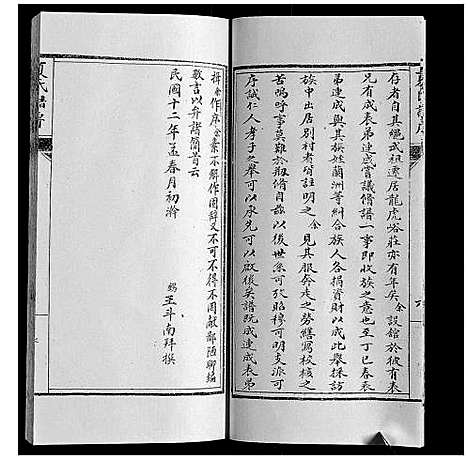 存者自其绳武祖遷居龍虎峪莊亦有年矣余設舘於彼有表
兄有成表弟連成嘗議脩譜一事即收族之意也至丁巳春表
弟連成與其族姓蘭洲等糾合族人各捐資財以成此舉採訪
族中出居別村者皆註明之余見其服奔走之勞繕寫校核之
苦嗚呼事莫難於剏脩自茲以後世系可张昭穆可明支派可
序誠仁人孝子之舉可以承先可以啟後矣譜既成連成表弟
揖余作序余素不解作固辞又不可不得不用献鄙陋聊編
數言以弁諸簡首云
民國十二年孟春月初澣
王斗南拜撰